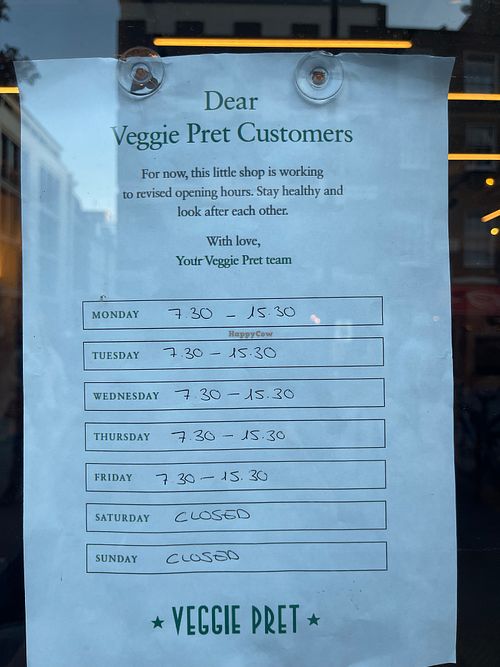 Dear
Veggie Pret Customers
For now, this little shop is working
to revised opening hours. Stay healthy and
look after each other.
With love,
Your Veggie Pret team
MONDAY 7.30 - 15.30
HappyCow
TUESDAY 7.30 - 15.30
WEDNESDAY 7.30 - 15.30
THURSDAY 7.30 - 15.30
FRIDAY 7.30 - 15.30
SATURDAY CLOSED
SUNDAY CLOSED
★ VEGGIE PRET ★